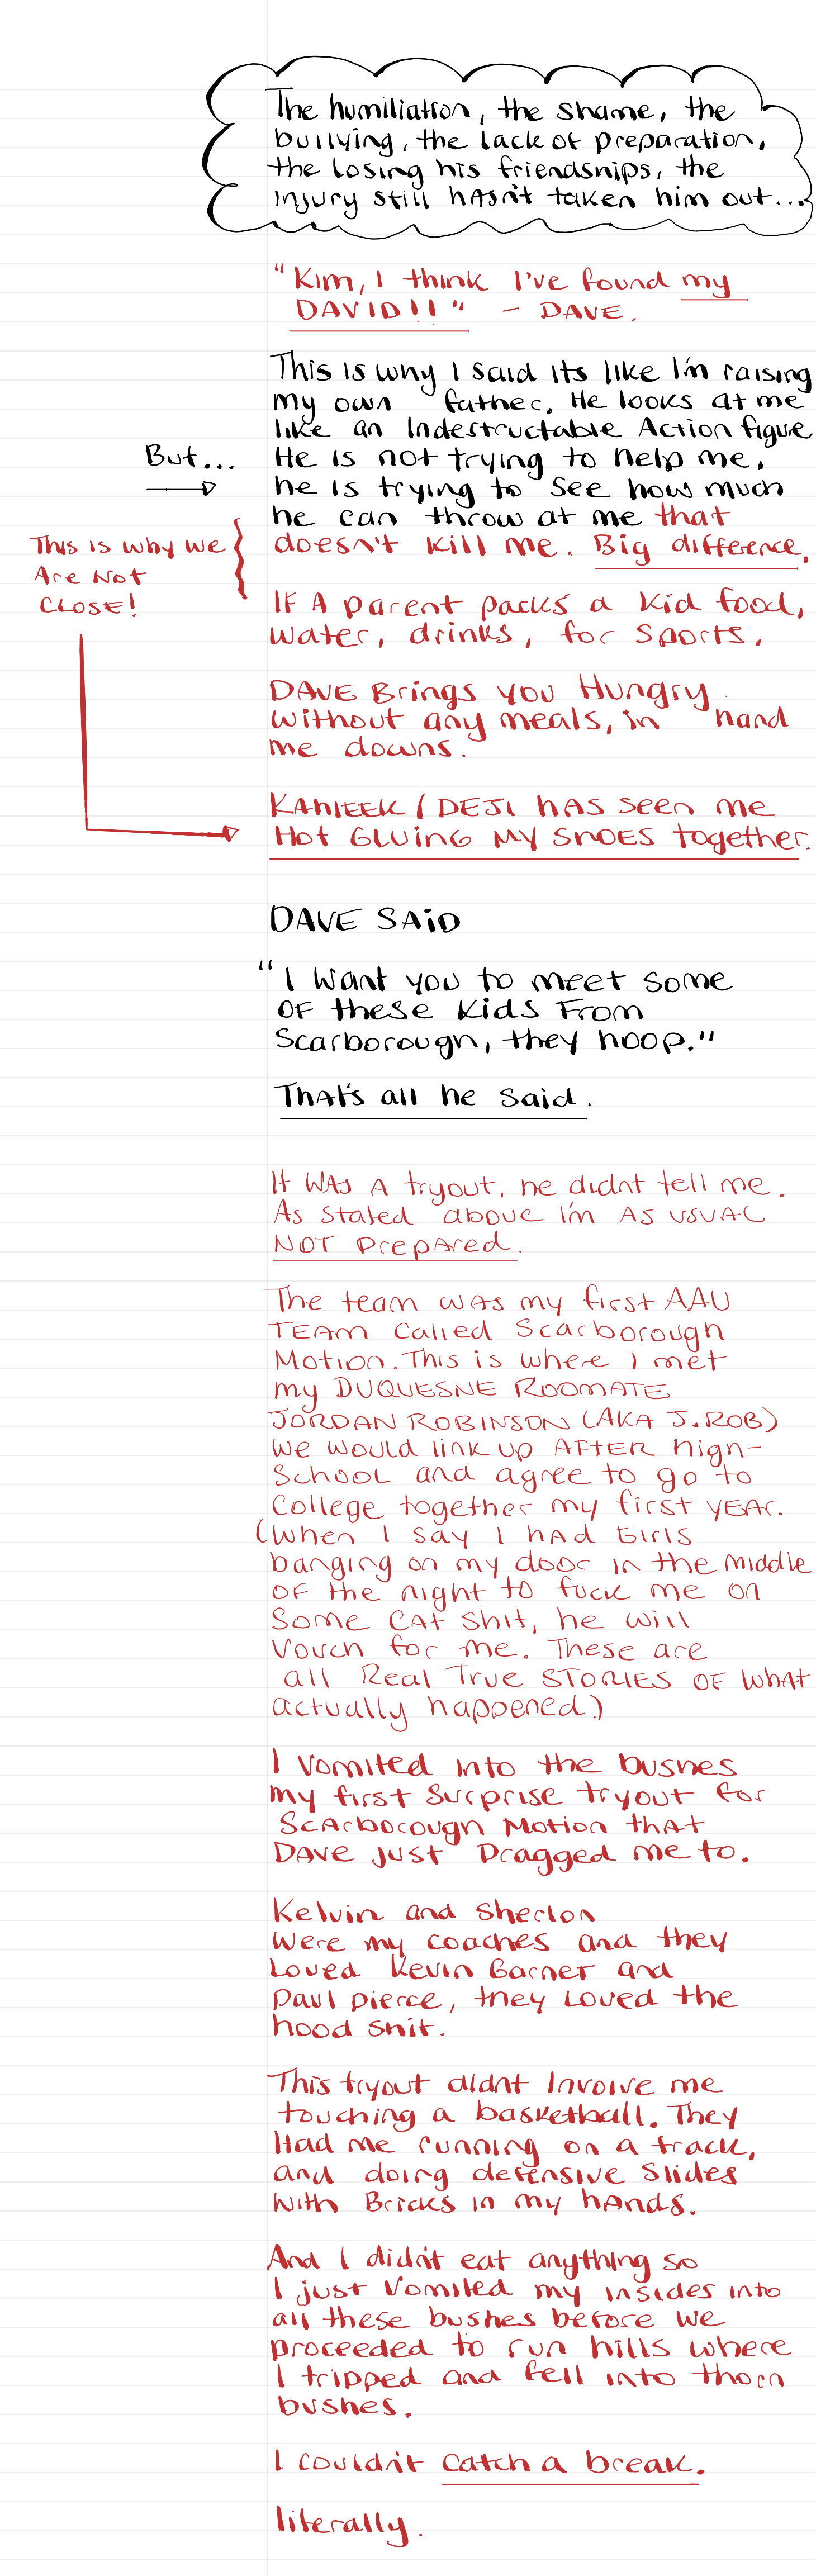 The humiliation, the shame, the
bullying, the lack of preparation,
the losing his friendships, the
injury still hasn't taken him out...
"Kim, I think I've found my
DAVID!!" - DAVE.
This is why I said its like I'm raising
my own father. He looks at me
like an Indestructable Action figure
But...
He is not trying to help me,
he is trying to see how much
he can throw at me that
doesn't kill me. Big difference.
This is why we
Are Not
CLOSE!
IF A parent packs a kid food,
water, drinks, for sports,
DAVE Brings you Hungry
without any meals, in hand
me downs.
KAHIEEK / DEJI HAS seen me
Hot GLUING MY SHOES together.
DAVE SAID
"I want you to meet some
OF these kids From
Scarborough, they hoop."
That's all he said.
It WAS A tryout, he didnt tell me.
As stated above I'm AS USUAL
NOT Prepared.
The team was my first AAU
TEAM Called Scarborough
Motion. This is where I met
my DUQUESNE ROOMATE
JORDAN ROBINSON (AKA J.ROB)
We would link up AFTER high-
SCHOOL and agree to go to
College together my first YEAR.
(When I say I had Girls
banging on my door in the middle
OF the night to fuck me on
Some CAt Shit, he will
Vouch for me. These are
all Real True STORIES OF what
actually happened.)
I Vomited into the bushes
my first Surprise tryout for
Scarborough Motion that
DAVE just Dragged me to.
Kelvin and Sheldon
were my coaches and they
Loved Kevin Garnet and
Paul pierce, they Loved the
hood shit.
This tryout didnt Involve me
touching a basketball. They
Had me running on a track,
and doing defensive Slides
with Bricks in my hands.
And I didn't eat anything so
I just Vomited my insides into
all these bushes before we
proceeded to run hills where
I tripped and fell into thorn
bushes.
I couldn't catch a break.
literally.